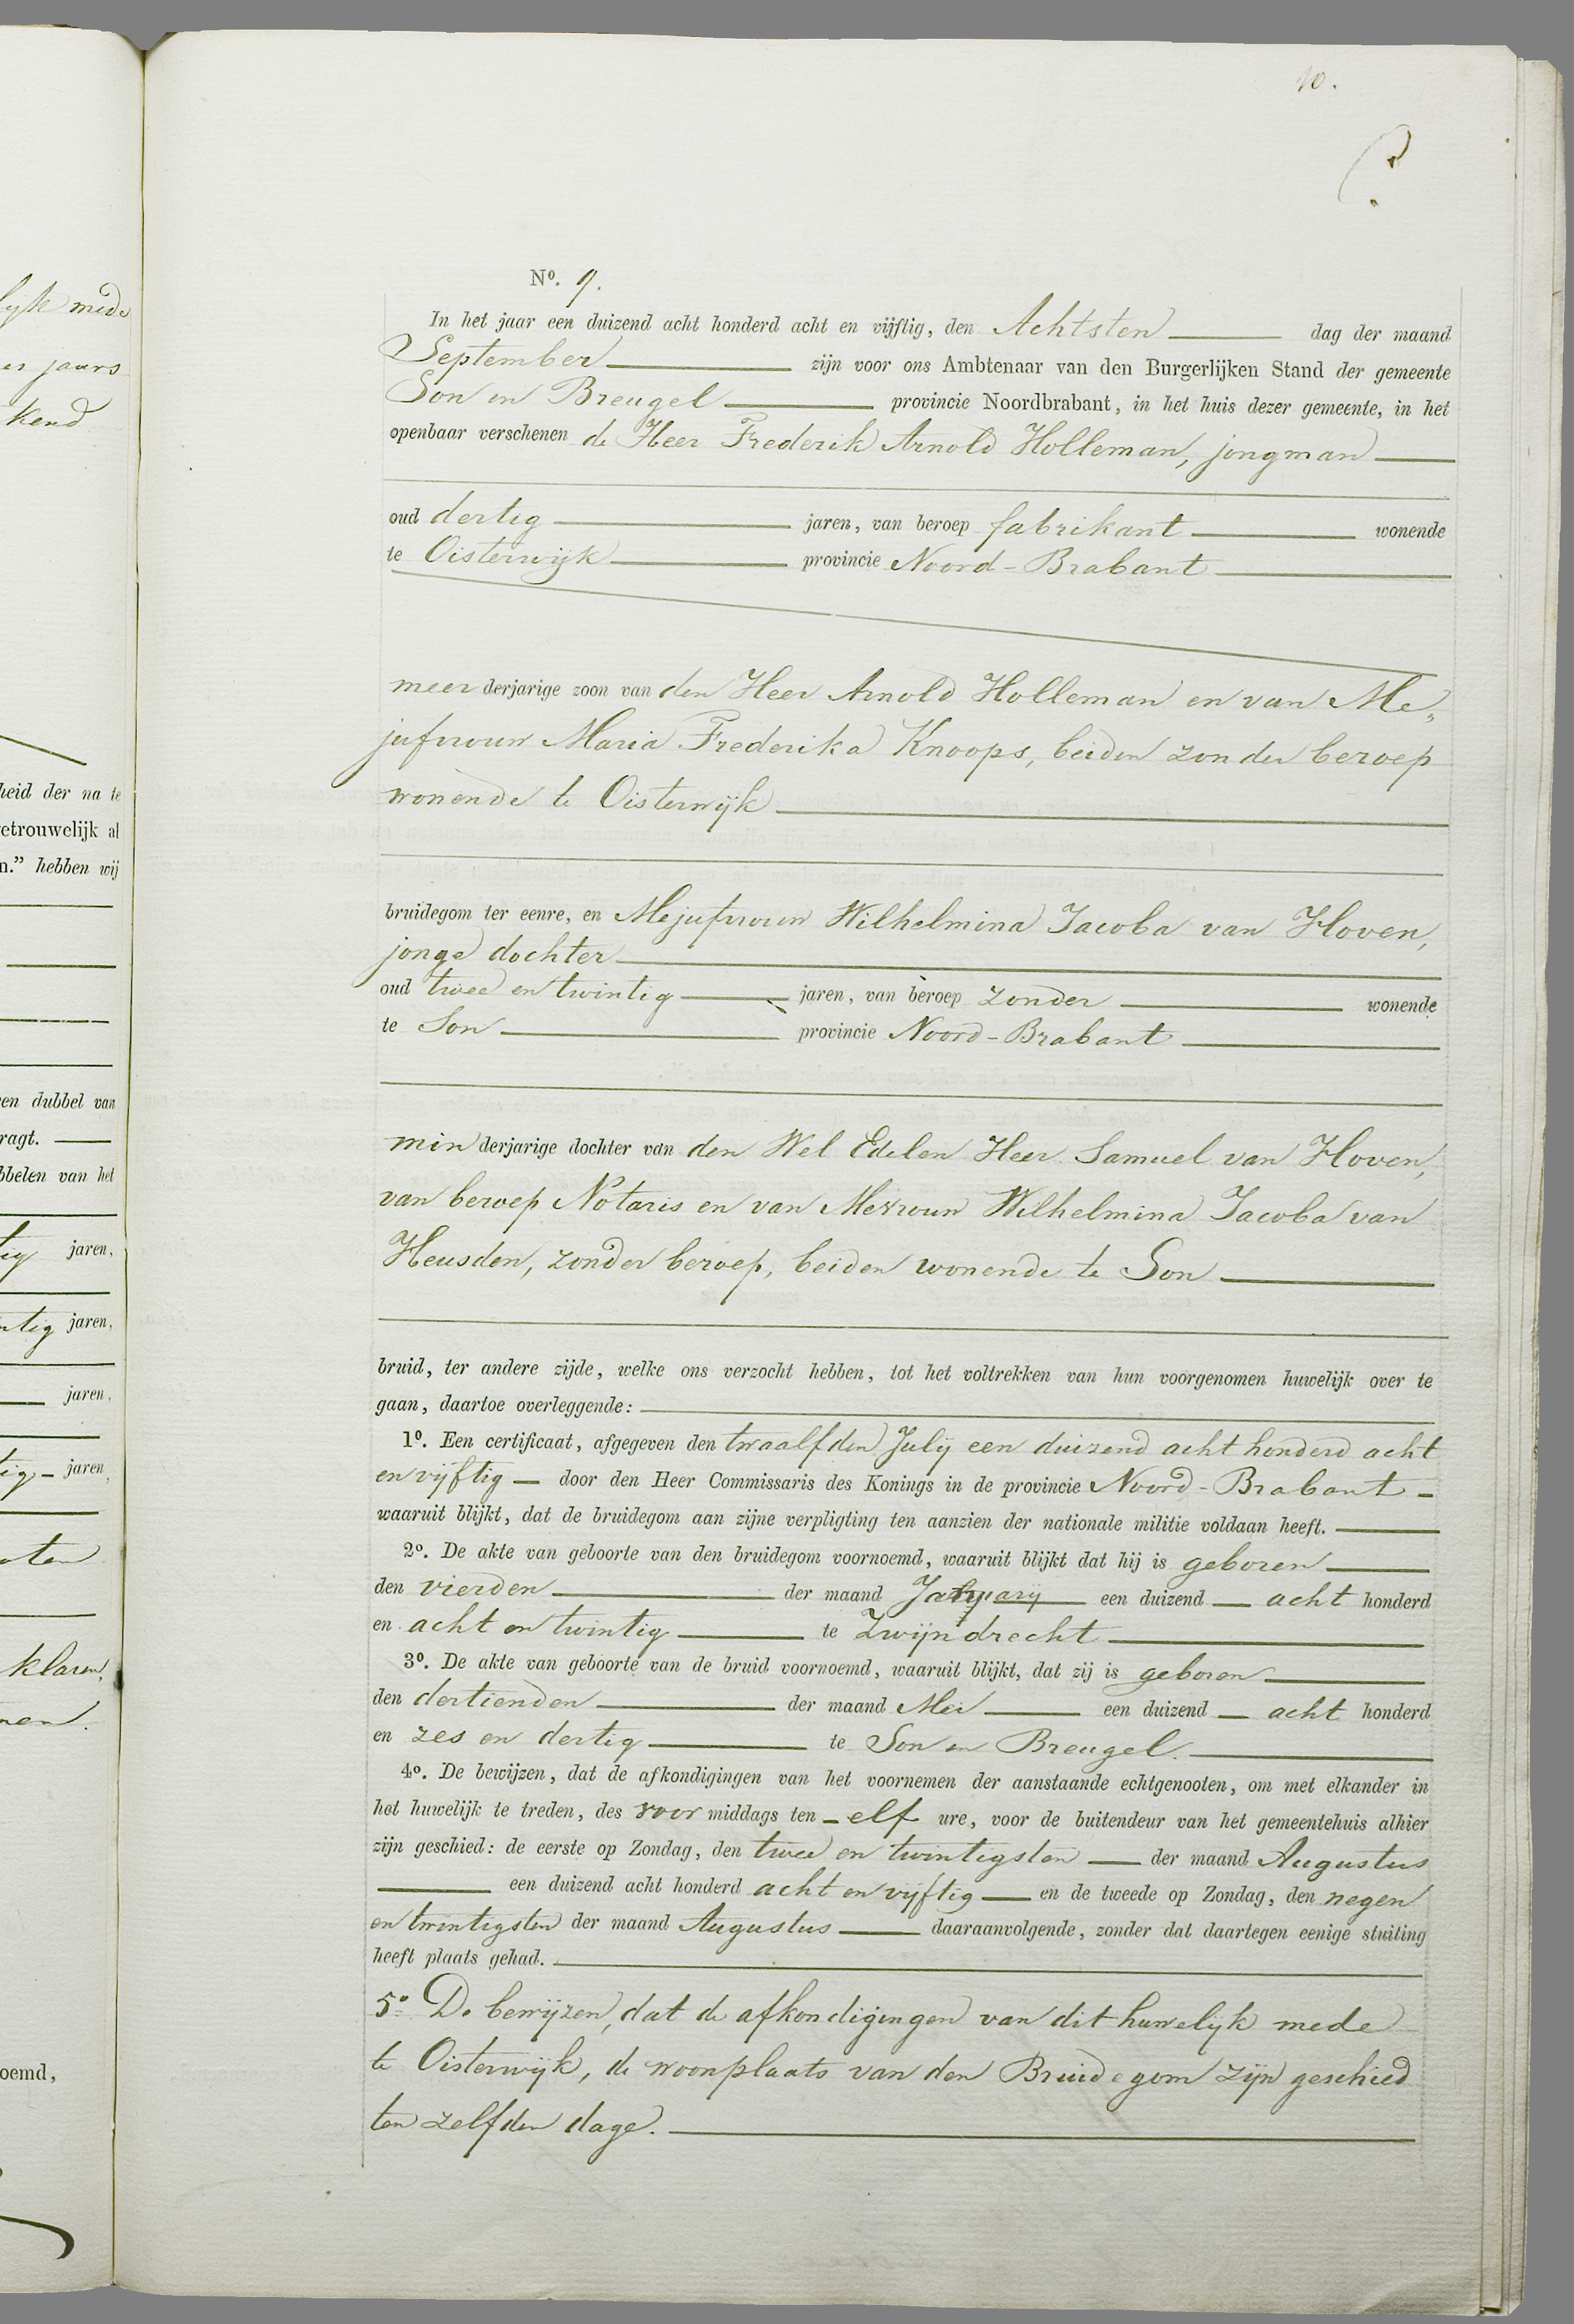 10.
No. 9.
In het jaar een duizend acht honderd acht en vijftig, den Achtsten dag der maand
September zijn voor ons Ambtenaar van den Burgerlijken Stand der gemeente
Son en Breugel provincie Noordbrabant, in het huis dezer gemeente, in het
openbaar verschenen de Heer Frederik Arnold Holleman, jongman
oud dertig jaren, van beroep fabrikant wonende
te Oisterwijk provincie Noord-Brabant
meerderjarige zoon van den Heer Arnold Holleman en van Me„
jufvrouw Maria Frederika Knoops, beiden zonder beroep
wonende te Oisterwijk
bruidegom ter eenre, en Mejufvrouw Wilhelmina Jacoba van Hoven,
jonge dochter
oud twee en twintig jaren, van beroep zonder wonende
te Son provincie Noord-Brabant
minderjarige dochter van den Wel Edelen Heer Samuel van Hoven,
van beroep Notaris en van Mevrouw Wilhelmina Jacoba van
Heusden, zonder beroep, beiden wonende te Son
bruid, ter andere zijde, welke ons verzocht hebben, tot het voltrekken van hun voorgenomen huwelijk over te
gaan, daartoe overleggende:
1o. Een certificaat, afgegeven den twaalfden Julij een duizend acht honderd acht
en vijftig door den Heer Commissaris des Konings in de provincie Noord-Brabant
waaruit blijkt, dat de bruidegom aan zijne verpligting ten aanzien der nationale militie voldaan heeft.
2o. De akte van geboorte van den bruidegom voornoemd, waaruit blijkt dat hij is geboren
den vierden der maand Januarij een duizend acht honderd
en acht en twintig te Zwijndrecht
3o. De akte van geboorte van de bruid voornoemd, waaruit blijkt, dat zij is geboren
den dertienden der maand Mei een duizend acht honderd
en zes en dertig te Son en Breugel.
4o. De bewijzen, dat de afkondigingen van het voornemen der aanstaande echtgenooten, om met elkander in
het huwelijk te treden, des voormiddags ten elf ure, voor de buitendeur van het gemeentehuis alhier
zijn geschied: de eerste op Zondag, den twee en twintigsten der maand Augustus
een duizend acht honderd acht en vijftig en de tweede op Zondag, den negen
en twintigsten der maand Augustus daaraanvolgende, zonder dat daartegen eenige stuiting
heeft plaats gehad.
5o De bewijzen, dat de afkondigingen van dit huwelijk mede
te Oisterwijk, de woonplaats van den Bruidegom zijn geschied
ten zelfden dage.
lijk mede
jaars
kend
heid der na te
etrouwelijk al
n." hebben wij
en dubbel van
ragt.
bbelen van het
tig jaren,
ntig jaren,
jaren,
tig jaren,
ten
klaren,
nen.
oemd,